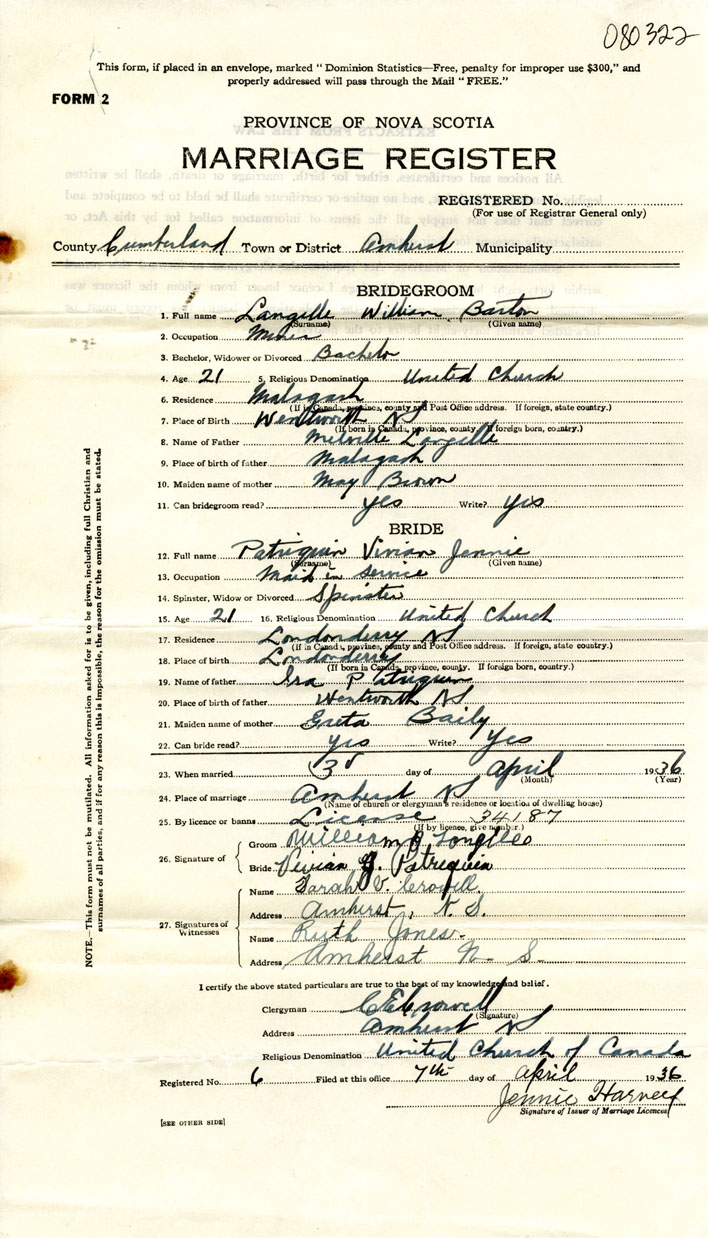 080322
This form, if placed in an envelope, marked "Dominion Statistics—Free, penalty for improper use $300," and
properly addressed will pass through the Mail "FREE."
FORM 2
PROVINCE OF NOVA SCOTIA
MARRIAGE REGISTER
REGISTERED No.
(For use of Registrar General only)
County Cumberland Town or District Amherst Municipality
BRIDEGROOM
1. Full name Langille William Barton
(Surname) (Given name)
2. Occupation Miner
3. Bachelor, Widower or Divorced Bachelor
4. Age 21 5. Religious Denomination United Church
6. Residence Malagash
(If in Canada, province, county and Post Office address. If foreign, state country.)
7. Place of Birth Wentworth NS
(If born in Canada, province, county. If foreign born, country.)
8. Name of Father Melville Langille
9. Place of birth of father Malagash
10. Maiden name of mother May Brown
11. Can bridegroom read? yes Write? yes
BRIDE
12. Full name Patriquin Vivian Jennie
(Surname) (Given name)
13. Occupation Maid in service
14. Spinster, Widow or Divorced Spinster
15. Age 21 16. Religious Denomination United Church
17. Residence Londonderry NS
(If in Canada, province, county and Post Office address. If foreign, state country.)
18. Place of birth Londonderry
(If born in Canada, province, county. If foreign born, country.)
19. Name of father Ira Patriquin
20. Place of birth of father Wentworth NS
21. Maiden name of mother Greta Baily
22. Can bride read? yes Write? yes
23. When married 3d day of April 1936
(Month) (Year)
24. Place of marriage Amherst NS
(Name of church or clergyman's residence or location of dwelling house)
25. By licence or banns License 34187
(If by licence, give number.)
26. Signature of
Groom William B Langille
Bride Vivian J. Patriquin
27. Signatures of Witnesses
Name Sarah V. Crowell.
Address Amherst, N. S.
Name Ruth Jones.
Address Amherst N. S.
I certify the above stated particulars are true to the best of my knowledge and belief.
Clergyman C E Crowell
(Signature)
Address Amherst NS
Religious Denomination United Church of Canada
Registered No. 6 Filed at this office 7th day of April 1936
Jennie Harvey
Signature of Issuer of Marriage Licences
[SEE OTHER SIDE]
NOTE.—This form must not be mutilated. All information asked for is to be given, including full Christian and
surnames of all parties, and if for any reason this is impossible, the reason for the omission must be stated.